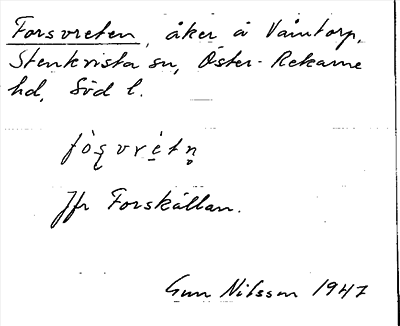 Forsvreten, åker å Våmtorp,
Stenkvista sn, Öster-Rekarne
hd, Söd l.
Jfr Forskällan.
Gun Nilsson 1947